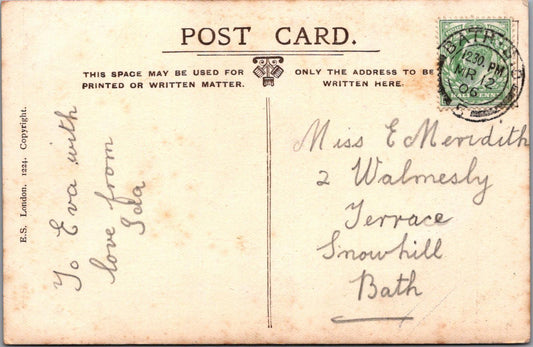 POST CARD.
THIS SPACE MAY BE USED FOR
PRINTED OR WRITTEN MATTER.
ONLY THE ADDRESS TO BE
WRITTEN HERE.
BATH
12.30 PM
MR 12
06
5
HALFPENNY
E.S. London. 1224. Copyright.
To Eva with
love from
Ida
Miss E Meridith
2 Walmesly
Terrace
Snowhill
Bath